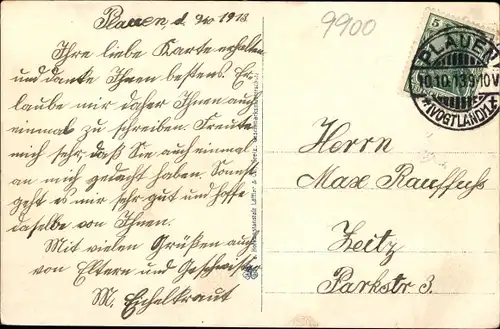 Plauen, d. 9/10 1913
9900
Ihre liebe Karte erhalten
und danke Ihnen bestens. Er-
laube mir daher Ihnen auch
einmal zu schreiben. Freute
mich sehr, daß Sie auch einmal
an mich gedacht haben. Sonst
geht es mir sehr gut und hoffe
daselbe von Ihnen.
Mit vielen Grüßen auch
von Eltern und Geschwister
M. Eichelkraut
5
PLAUEN
10.10.13.9-10V
*(VOGTLAND)1*
Herrn
Max Rauffuss
Zeitz
Parkstr 3.